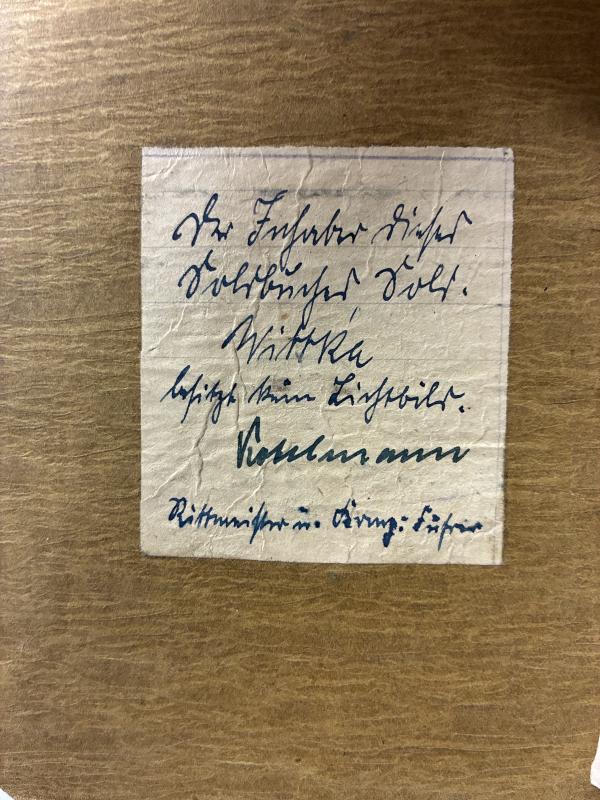 Der Inhaber dieses
Soldbuches, Sold.
Wittka
besitzt kein Lichtbild.
Kottelmann
Rittmeister u. Komp: Führer